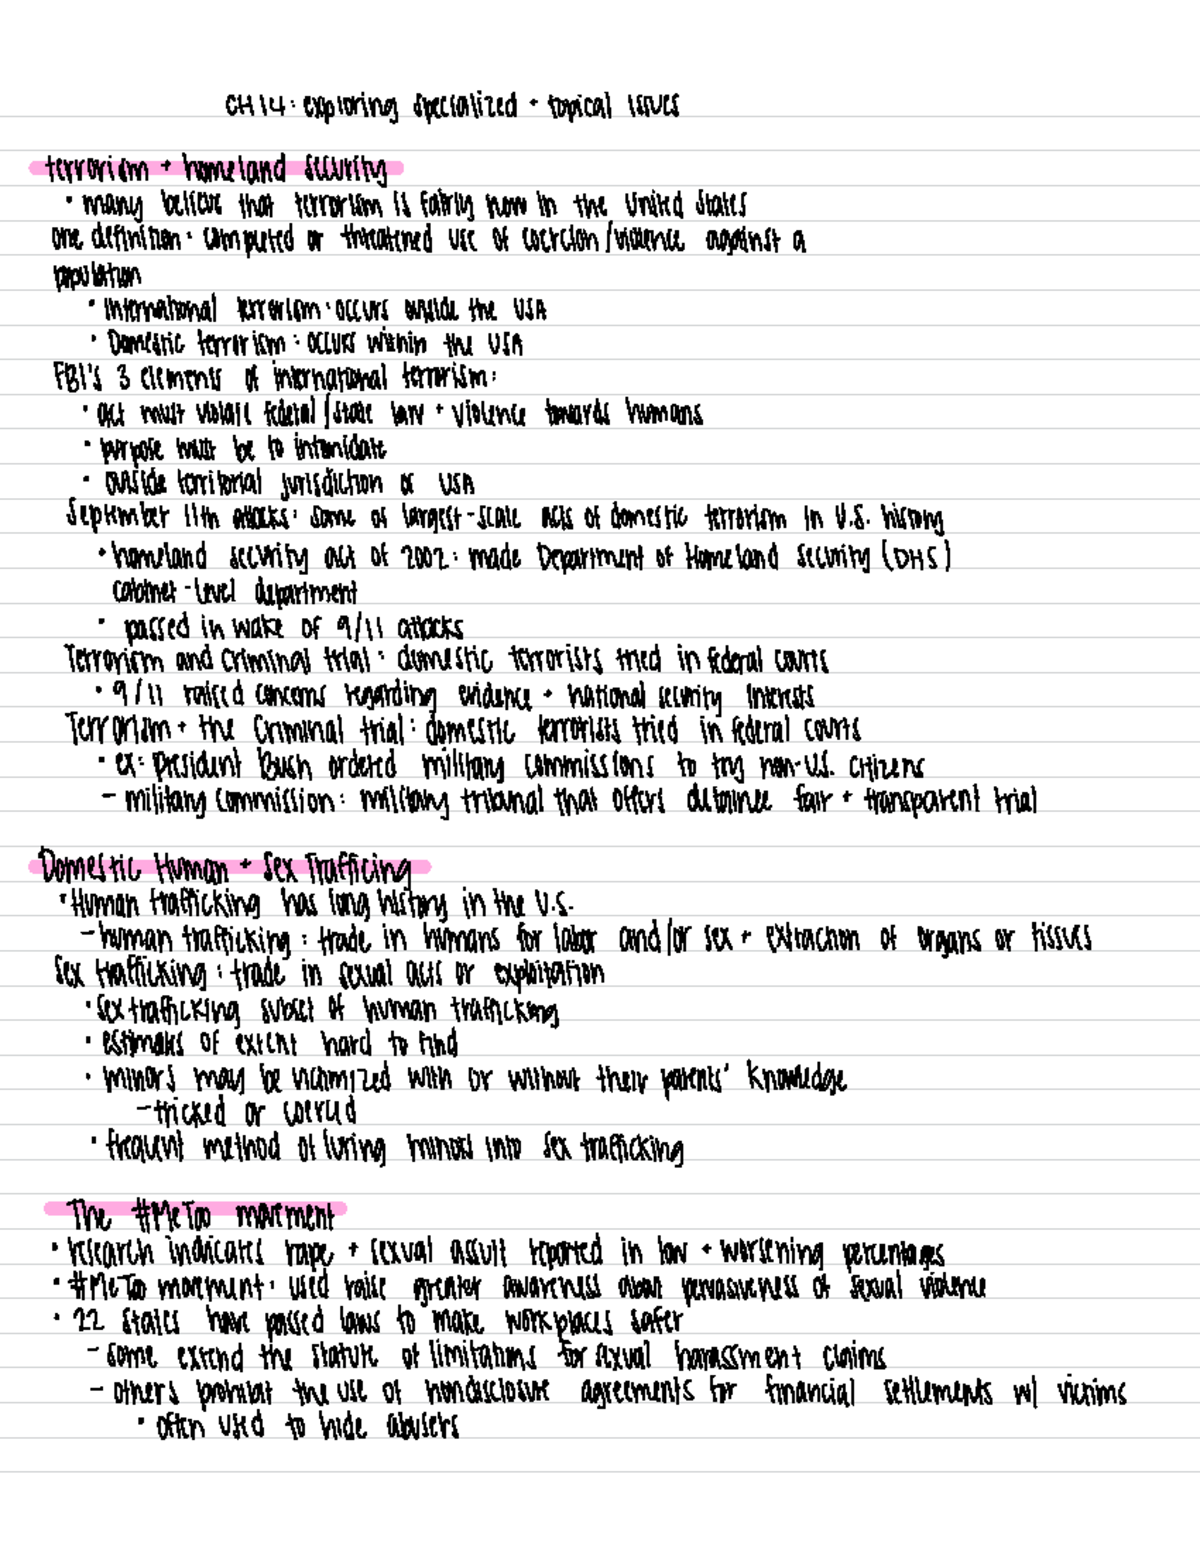 CH 14: exploring specialized + topical issues
terrorism + homeland security
• many believe that terrorism is fairly new in the United States
one definition: completed or threatened use of coercion/violence against a
population
• International terrorism: occurs outside the USA
• Domestic terrorism: occurs within the USA
FBI's 3 elements of international terrorism:
• act must violate federal/state law + violence towards humans
• purpose must be to intimidate
• outside territorial jurisdiction of USA
September 11th attacks: some of largest-scale acts of domestic terrorism in U.S. history
• homeland security act of 2002: made Department of Homeland Security (DHS)
cabinet-level department
• passed in wake of 9/11 attacks
Terrorism and criminal trial: domestic terrorists tried in federal courts
• 9/11 raised concerns regarding evidence + national security interests
Terrorism + the Criminal trial: domestic terrorists tried in federal courts
• ex: President Bush ordered military commissions to try non-U.S. citizens
- military commission: military tribunal that offers detainee fair + transparent trial
Domestic Human + Sex Trafficing
• Human trafficking has long history in the U.S.
- human trafficking: trade in humans for labor and/or sex + extraction of organs or tissues
Sex trafficking: trade in sexual acts or exploitation
• sex trafficking subset of human trafficking
• estimates of extent hard to find
• minors may be victimized with or without their parents' knowledge
- tricked or coerced
• frequent method of luring minors into sex trafficking
The #MeToo movement
• research indicates rape + sexual assult reported in low + worsening percentages
• #MeToo movement: used raise greater awareness about pervasiveness of sexual violence
• 22 states have passed laws to make workplaces safer
- some extend the stature of limitations for sexual harassment claims
- others prohibit the use of nondisclosure agreements for financial settlements w/ victims
• often used to hide abusers